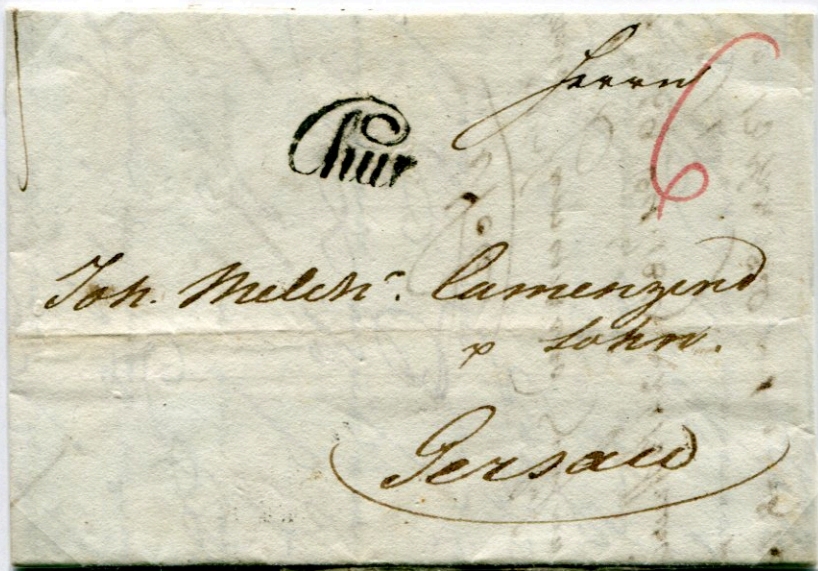 Herrn
6
Chur
Joh. Melchr. Camenzind
& Sohn.
Gersau